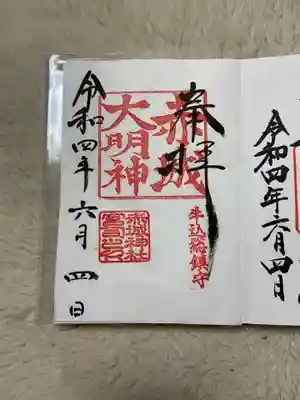 奉拝
赤城
大明神
牛込総鎮守
赤城神社
令和四年六月四日
令和四年六月四日